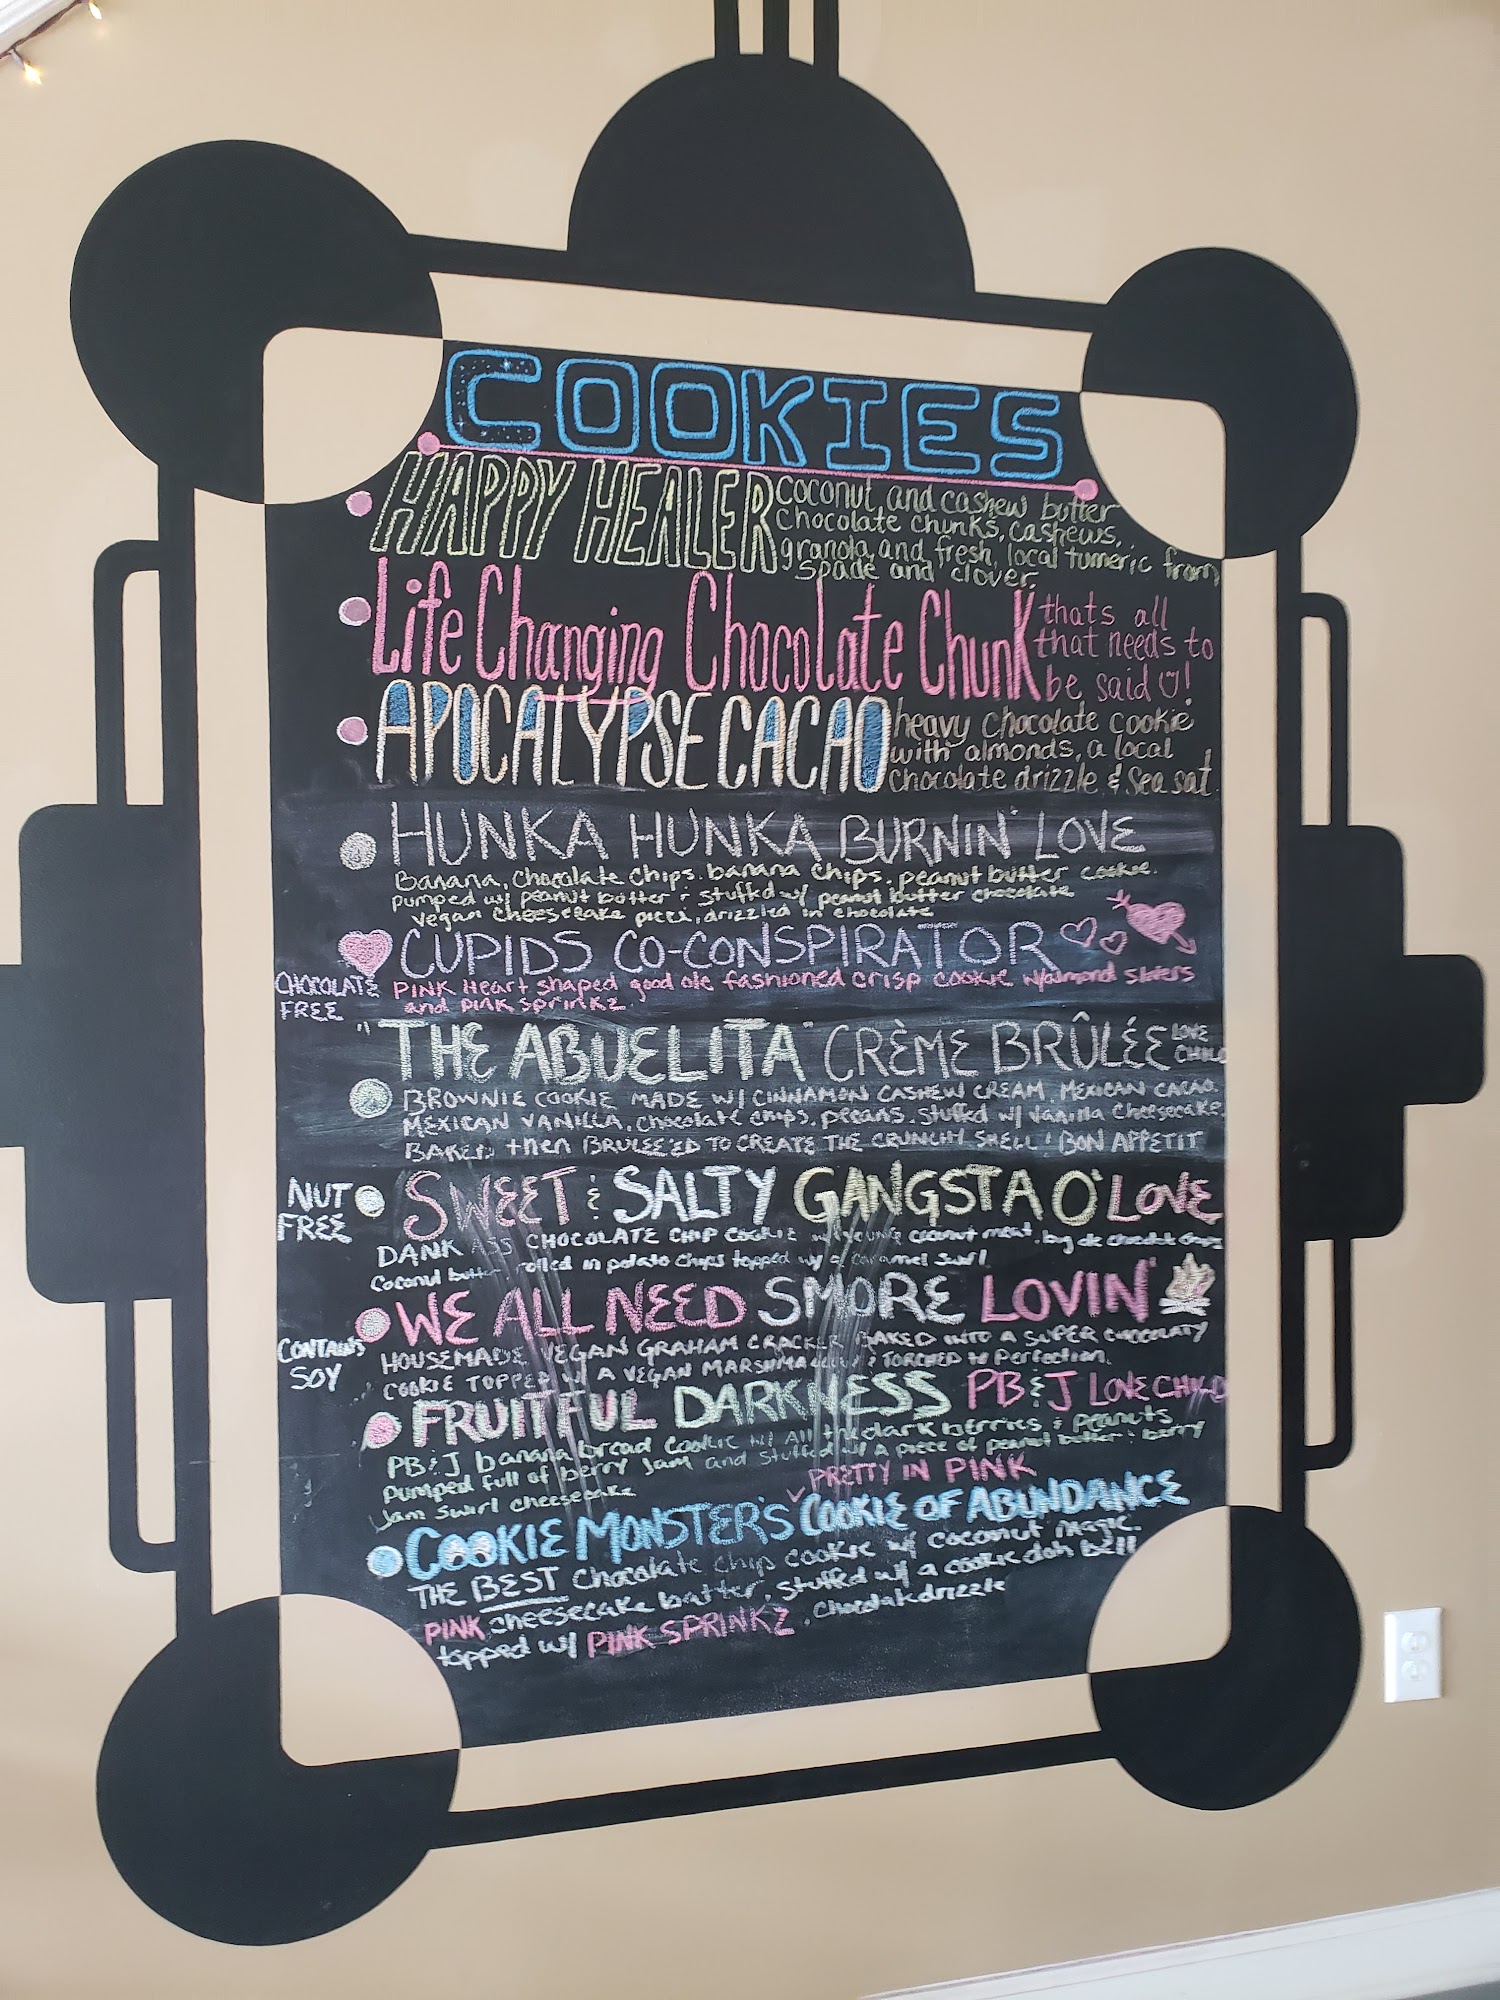 COOKIES
HAPPY HEALER
coconut, and cashew butter
chocolate chunks, cashews,
granola, and fresh, local tumeric from
spade and clover.
Life Changing Chocolate Chunk
thats all
that needs to
be said!
APOCALYPSE CACAO
heavy chocolate cookie
with almonds, a local
chocolate drizzle & sea sat.
HUNKA HUNKA BURNIN' LOVE
Banana, chocolate chips, banana chips, peanut butter cookie.
pumped w/ peanut butter & stuffd w/ peanut butter chocolate
vegan cheesecake piece, drizzled in chocolate
CUPIDS CO-CONSPIRATOR
CHOCOLATE
FREE
PINK Heart shaped good ole fashioned crisp cookie w/almond slivers
and pink sprinkz.
"THE ABUELITA" CRÈME BRÛLÉE LOVE
CHILD
BROWNIE COOKIE MADE W/ CINNAMON CASHEW CREAM, MEXICAN CACAO,
MEXICAN VANILLA, chocolate chips, pecans, stuffed w/ vanilla cheesecake,
BAKED, then BRULEE'ED TO CREATE THE CRUNCHY SHELL! BON APPETIT
NUT
FREE
SWEET & SALTY GANGSTA O' LOVE
DANK ASS CHOCOLATE CHIP COOKIE w/ young coconut meat,
Coconut butter, rolled in potato chips topped w/ a caramel swirl
WE ALL NEED SMORE LOVIN'
CONTAINS
SOY
HOUSEMADE VEGAN GRAHAM CRACKER BAKED INTO A SUPER CHOCOLATY
COOKIE TOPPED W/ A VEGAN MARSHMALLOW & TORCHED to Perfection.
FRUITFUL DARKNESS PB&J LOVECHILD
PB&J banana bread cookie w/ All the dark berries & peanuts
pumped full of berry Jam and stuffed w/ A piece of peanut butter & berry
Jam swirl cheesecake
PRETTY IN PINK
COOKIE MONSTER'S COOKIE OF ABUNDANCE
THE BEST chocolate chip cookie w/ coconut magic.
PINK cheesecake batter, stuffed w/ a cookie doh ball
topped w/ PINK SPRINKZ, chocolate drizzle